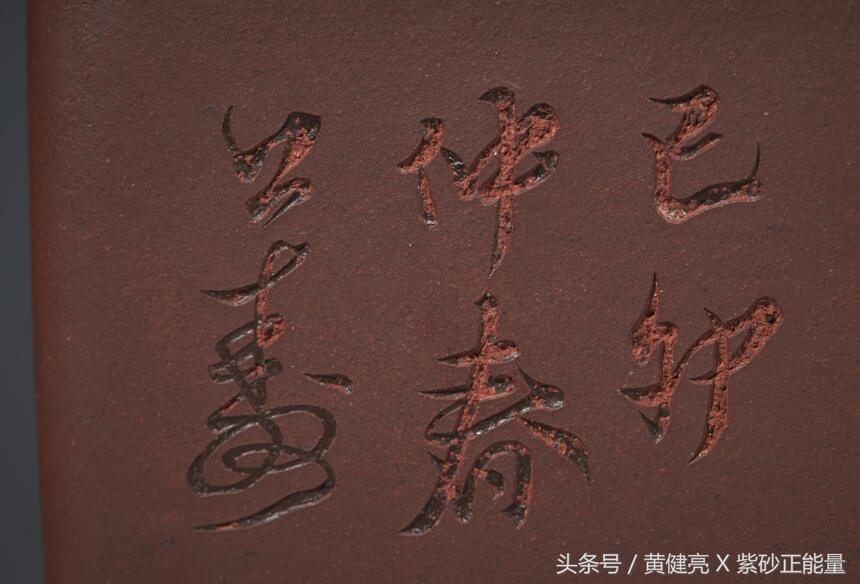 己卯
仲春
公寿
头条号 / 黄健亮 X 紫砂正能量